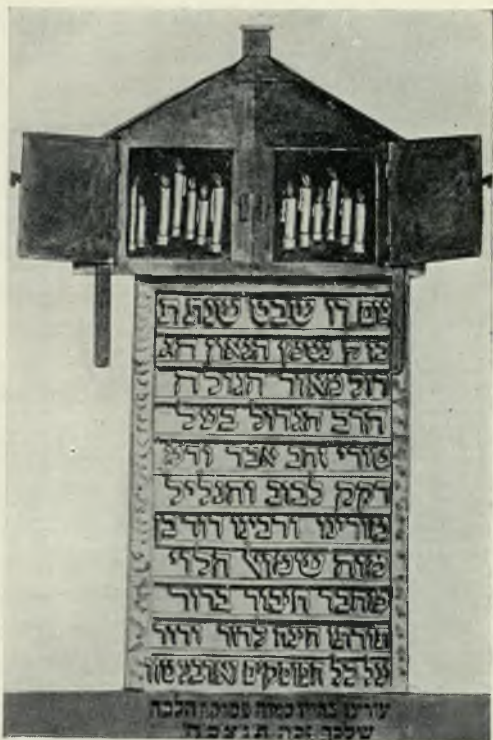 יום כו שבט שנת ת
נטמן הגאון הג
דול מאור הגולה
הרב הגדול בעל
טורי זהב אבד ורמ
דקק לבוב והגליל
מורינו ורבינו דוד בן
מוה שמואל הלוי
מחבר חיבור ברור
תורתו חיה לדור ודור
על כל הפוסקים וארבע טור
הלכה
שלכך זכה תנצבה